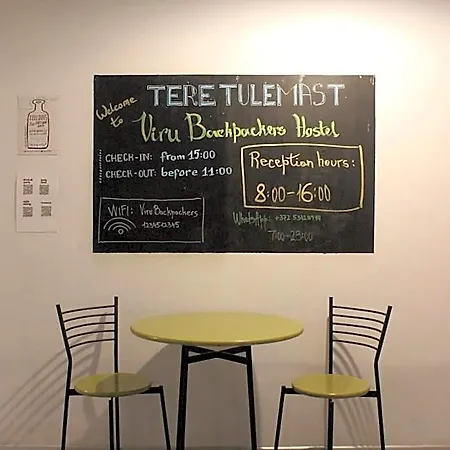 Welcome to
TERE TULEMAST
Viru Backpackers Hostel
CHECK-IN: from 15:00
CHECK-OUT: before 11:00
Reception hours:
8:00-16:00
WIFI: Viru Backpackers
1234512345
WhatsApp:
7:00-23:00